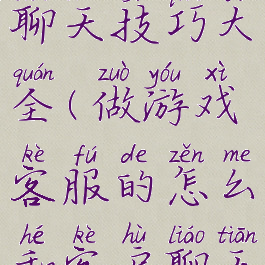 聊天技巧大
quán zuò yóu xì
全(做游戏
kè fú de zěn me
客服的怎么
hé kè hù liáo tiān
和客户聊天